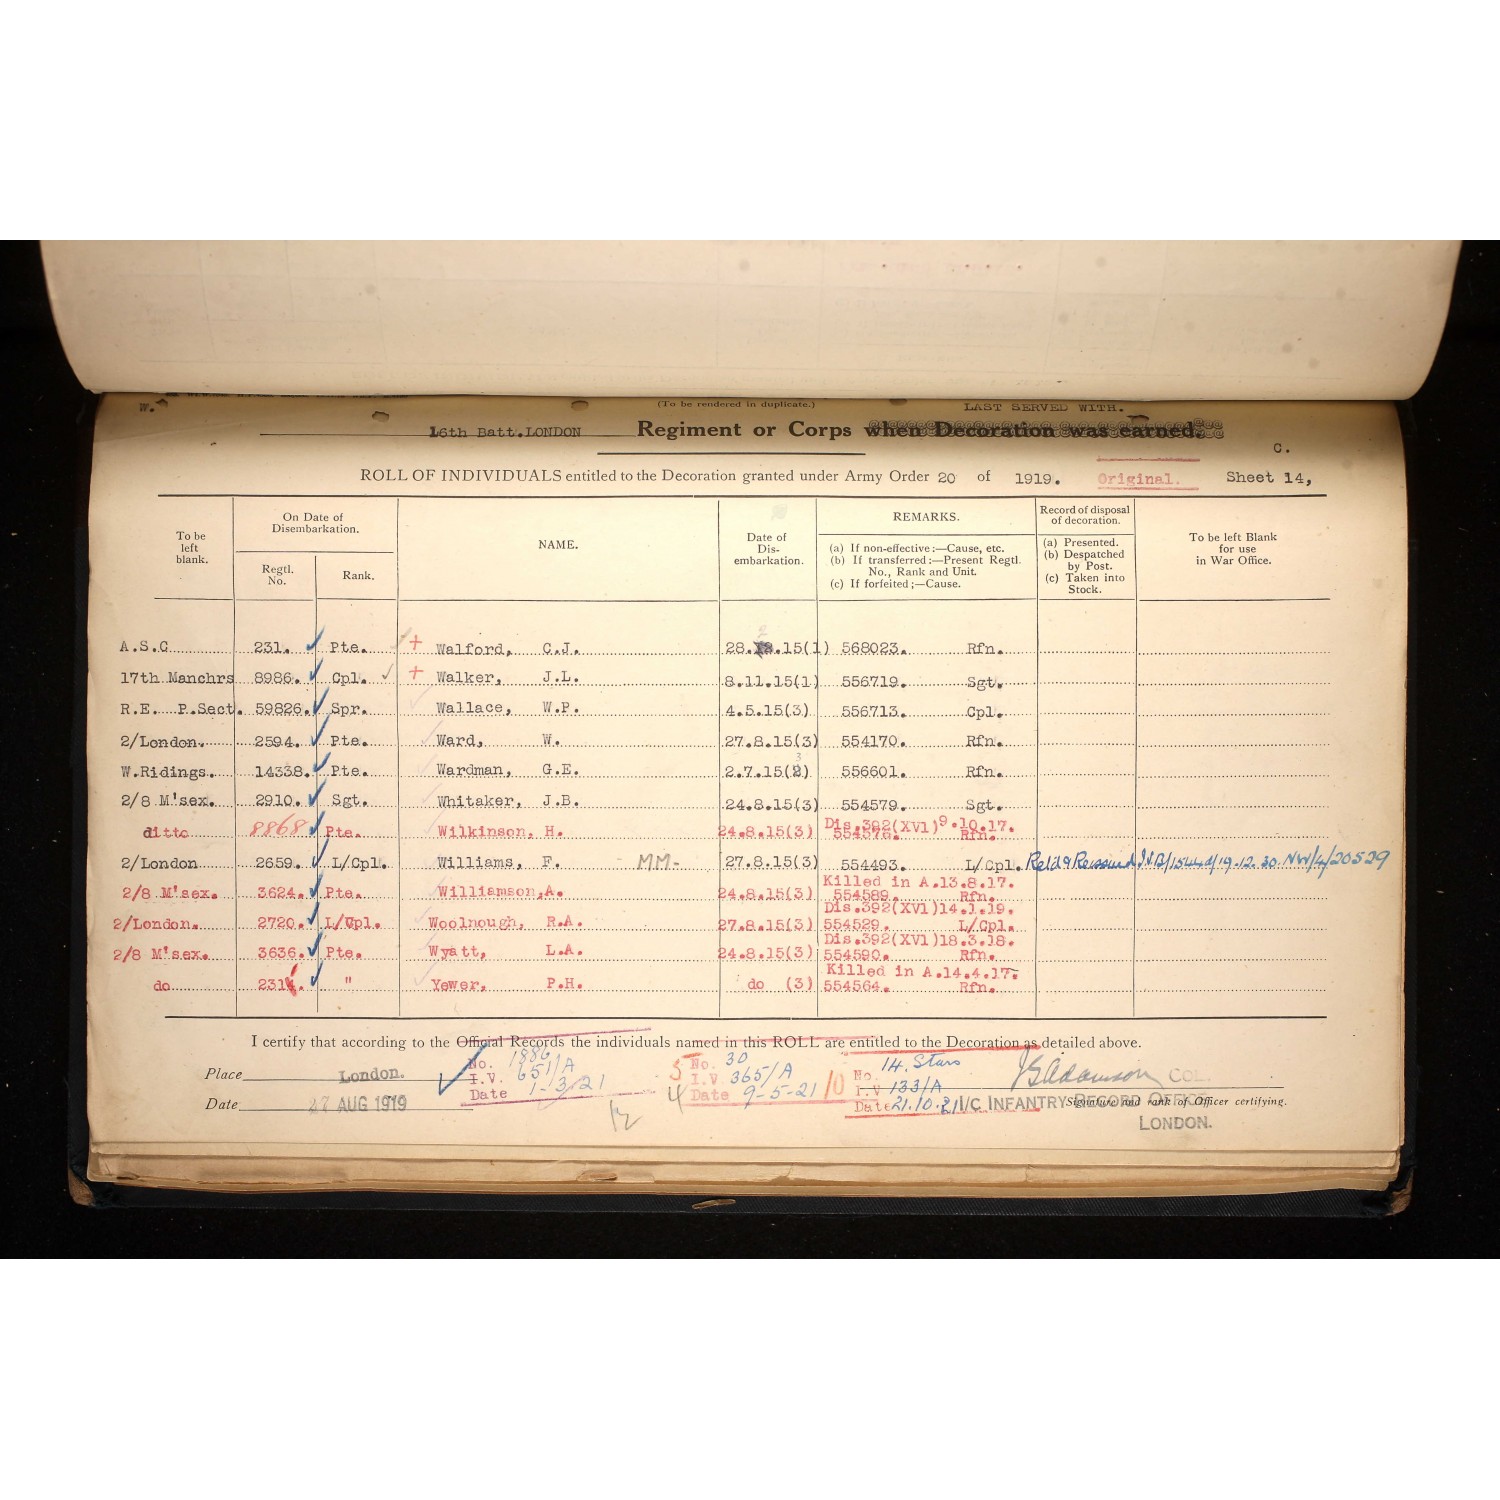 W. (To be rendered in duplicate.) LAST SERVED WITH.
16th Batt. LONDON Regiment or Corps when Decoration was earned.
C.
ROLL OF INDIVIDUALS entitled to the Decoration granted under Army Order 20 of 1919. Original. Sheet 14,
To be left blank. On Date of Disembarkation. Regtl. No. Rank. NAME. Date of Dis-embarkation. REMARKS. (a) If non-effective:—Cause, etc. (b) If transferred:—Present Regtl. No., Rank and Unit. (c) If forfeited;—Cause. Record of disposal of decoration. (a) Presented. (b) Despatched by Post. (c) Taken into Stock. To be left Blank for use in War Office.
A.S.C 231. Pte. + Walford, C.J. 28. 2 .15(1) 568023. Rfn.
17th Manchrs 8986. Cpl. + Walker, J.L. 8.11.15(1) 556719. Sgt.
R.E. P.Sect. 59826. Spr. Wallace, W.P. 4.5.15(3) 556713. Cpl.
2/London. 2594. Pte. Ward, W. 27.8.15(3) 554170. Rfn.
W.Ridings. 14338. Pte. Wardman, G.E. 2.7.15(2) 3 556601. Rfn.
2/8 M'sex. 2910. Sgt. Whitaker, J.B. 24.8.15(3) 554579. Sgt.
ditto 8868 Pte. Wilkinson, H. 24.8.15(3) Dis.392(XVI)9.10.17. 554576. Rfn.
2/London 2659. L/Cpl. Williams, F. MM- 27.8.15(3) 554493. L/Cpl. Ret'd & Reissued I.V.B/1544d/19-12.30. NW/4/20529
2/8 M'sex. 3624. Pte. Williamson, A. 24.8.15(3) Killed in A.13.8.17. 554589. Rfn.
2/London. 2720. L/Cpl. Woolnough, R.A. 27.8.15(3) Dis.392(XVI)14.1.19. 554529. L/Cpl.
2/8 M'sex. 3636. Pte. Wyatt, L.A. 24.8.15(3) Dis.392(XVI)18.3.18. 554590. Rfn.
do 231 . " Yewer, P.H. do (3) Killed in A.14.4.17. 554564. Rfn.
I certify that according to the Official Records the individuals named in this ROLL are entitled to the Decoration as detailed above.
No. 1886 I.V. 651/A Date 1-3/21
5 No. 30 I.V 365/A Date 9-5-21 /0
4
12
No. 14. Stars I.V 133/A Date 21.10.21
Place London. COL.
Date 27 AUG 1919 I/C INFANTRY RECORD OFFICE Signature and rank of Officer certifying.
LONDON.